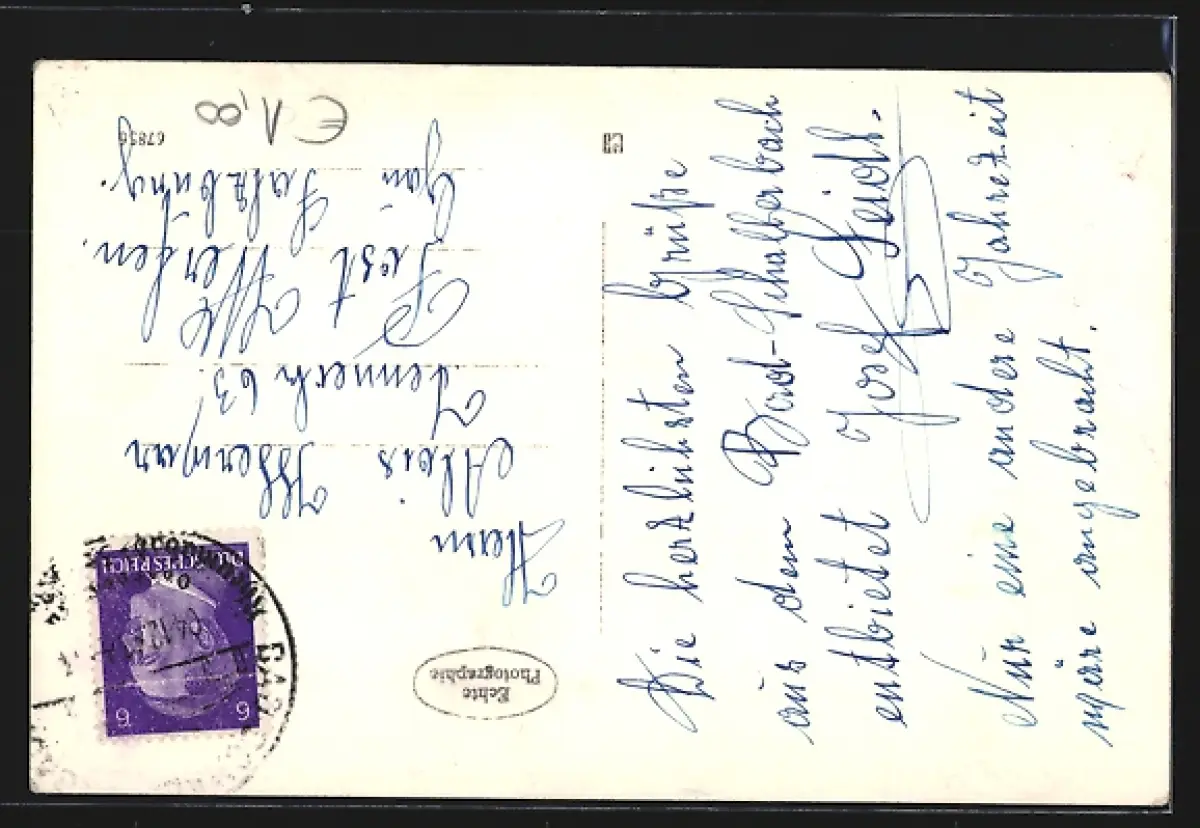 Die herzlichsten Grüße
aus dem Bad-Schallerbach
entbietet Josef
Nur eine andere Jahrezeit
wäre angebracht.
Herrn
Alois
63
Post Werfen.
Gau Salzburg.
Echte
Photographie
67856
€ 1,00
DEUTSCHES REICH
6 6
BAD